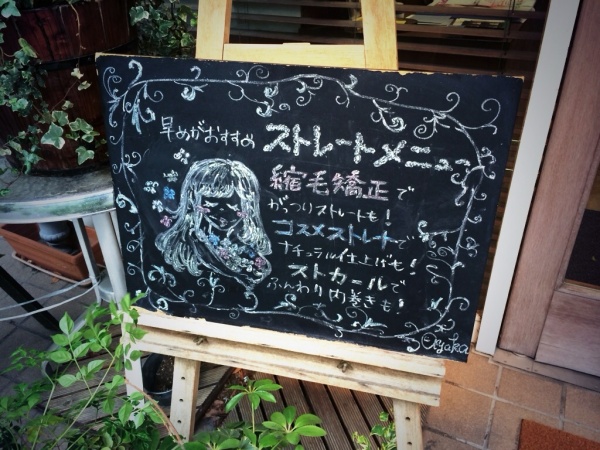 早めがおすすめ
ストレートメニュー
縮毛矯正で
がっつりストレートも!
コスメストレートで
ナチュラル仕上げも!
ストカールで
ふんわり内巻きも!
Ayaka